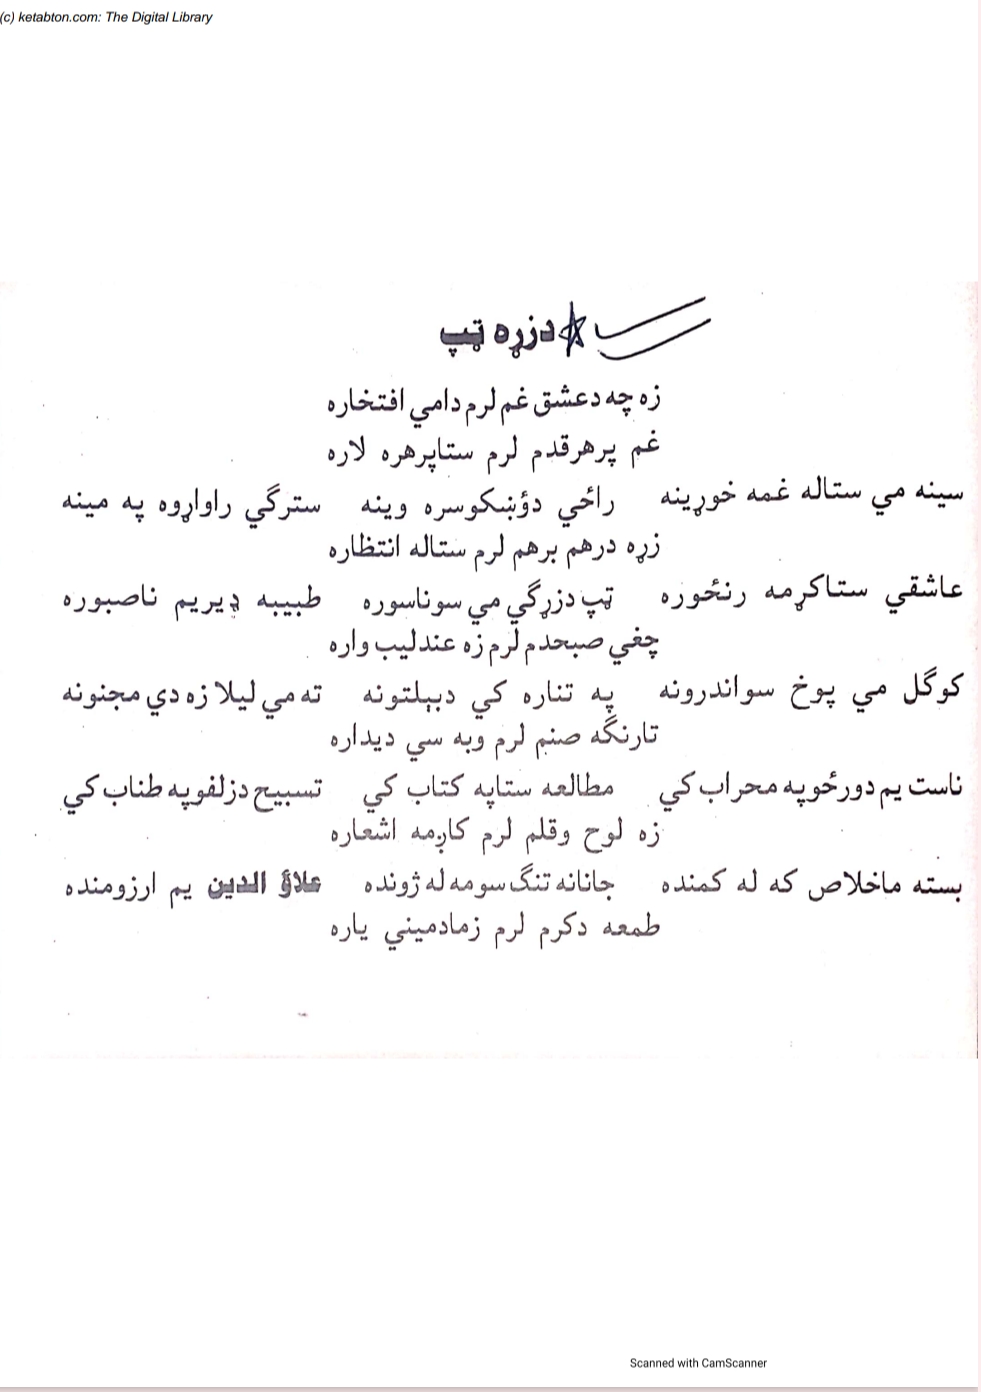 (c) ketabton.com: The Digital Library
دزړه ټپ
زه چه دعشق غم لرم دامي افتخاره
غم پرهرقدم لرم ستاپرهره لاره
سينه مي ستاله غمه خوړينه راځي دؤښکوسره وينه سترګي راواړوه په مينه
زړه درهم برهم لرم ستاله انتظاره
عاشقي ستاکړمه رنځوره ټپ دزړګي مي سوناسوره طبيبه ډيريم ناصبوره
چغي صبحدم لرم زه عندليب واره
کوګل مي پوخ سواندرونه په تناره کي دبېلتونه ته مي ليلا زه دي مجنونه
تارنګه صنم لرم وبه سي ديداره
ناست يم دورځوپه محراب کي مطالعه ستاپه کتاب کي تسبيح دزلفوپه طناب کي
زه لوح وقلم لرم کاږمه اشعاره
بسته ماخلاص که له کمنده جانانه تنګ سومه له ژونده علاؤ الدين يم ارزومنده
طمعه دکرم لرم زمادميني ياره
Scanned with CamScanner